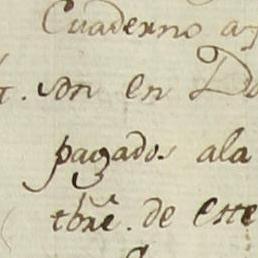 Cuaderno a
. Son en D
pagados ala
tbre. de este